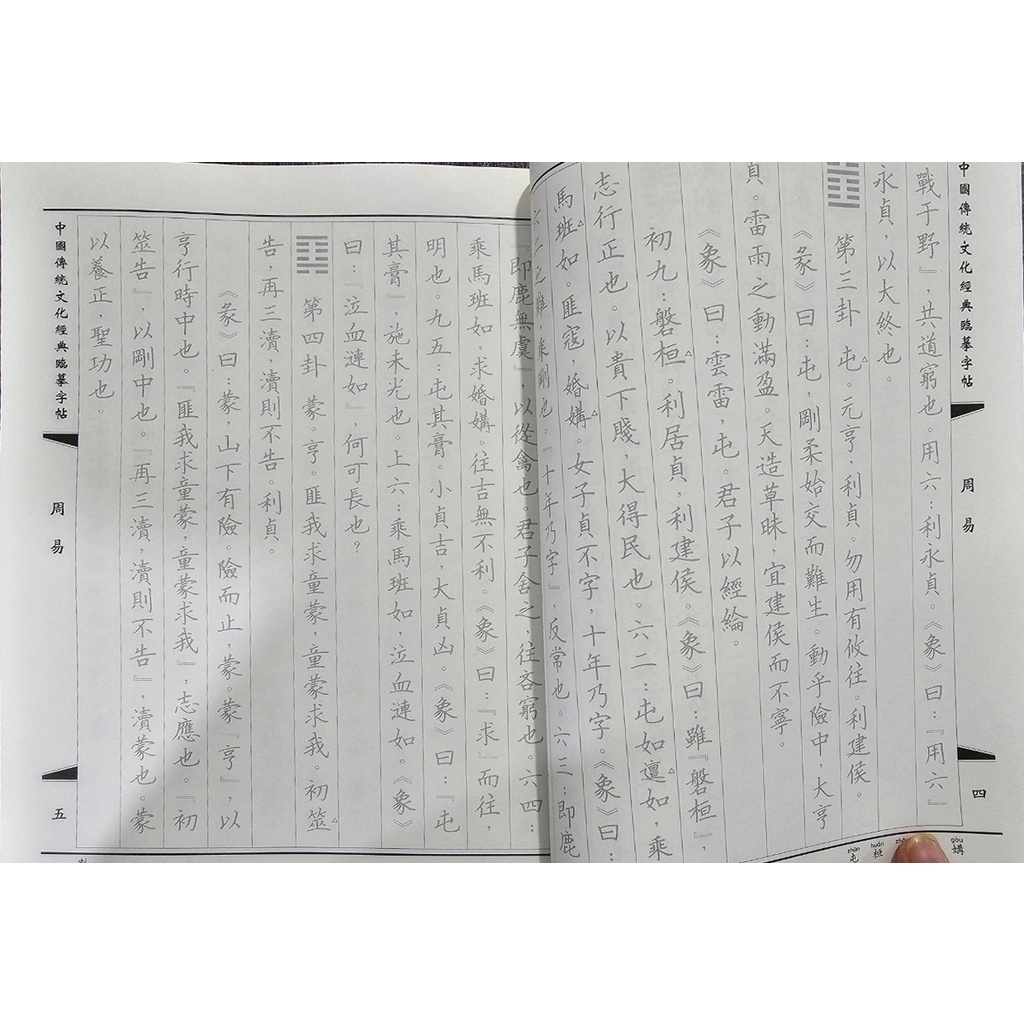 中國傳統文化經典臨摹字帖
周易
四
戰于野』,共道窮也。用六:利永貞。《象》曰:『用六』
永貞,以大終也。
第三卦 屯。元亨,利貞。勿用有攸往。利建侯。
《彖》曰:屯,剛柔始交而難生。動乎險中,大亨
貞。雷雨之動滿盈。天造草昧,宜建侯而不寧。
《象》曰:雲雷,屯。君子以經綸。
初九:磐桓。利居貞,利建侯。《象》曰:雖『磐桓』,
志行正也。以貴下賤,大得民也。六二:屯如邅如,乘
馬班如。匪寇,婚媾。女子貞不字,十年乃字。《象》曰:
六二之難,乘剛也。『十年乃字』,反常也。六三:即鹿
gòu
媾
huán
桓
zhūn
屯
『即鹿無虞』,以從禽也。君子舍之,往吝窮也。六四:
乘馬班如,求婚媾。往吉無不利。《象》曰:『求』而往,
明也。九五:屯其膏。小貞吉,大貞凶。《象》曰:『屯
其膏』,施未光也。上六:乘馬班如,泣血漣如。《象》
曰:『泣血漣如』,何可長也?
第四卦 蒙。亨。匪我求童蒙,童蒙求我。初筮
告,再三瀆,瀆則不告。利貞。
《彖》曰:蒙,山下有險。險而止,蒙。蒙『亨』,以
亨行時中也。『匪我求童蒙,童蒙求我』,志應也。『初
筮告』,以剛中也。『再三瀆,瀆則不告』,瀆蒙也。蒙
以養正,聖功也。
中國傳統文化經典臨摹字帖
周易
五